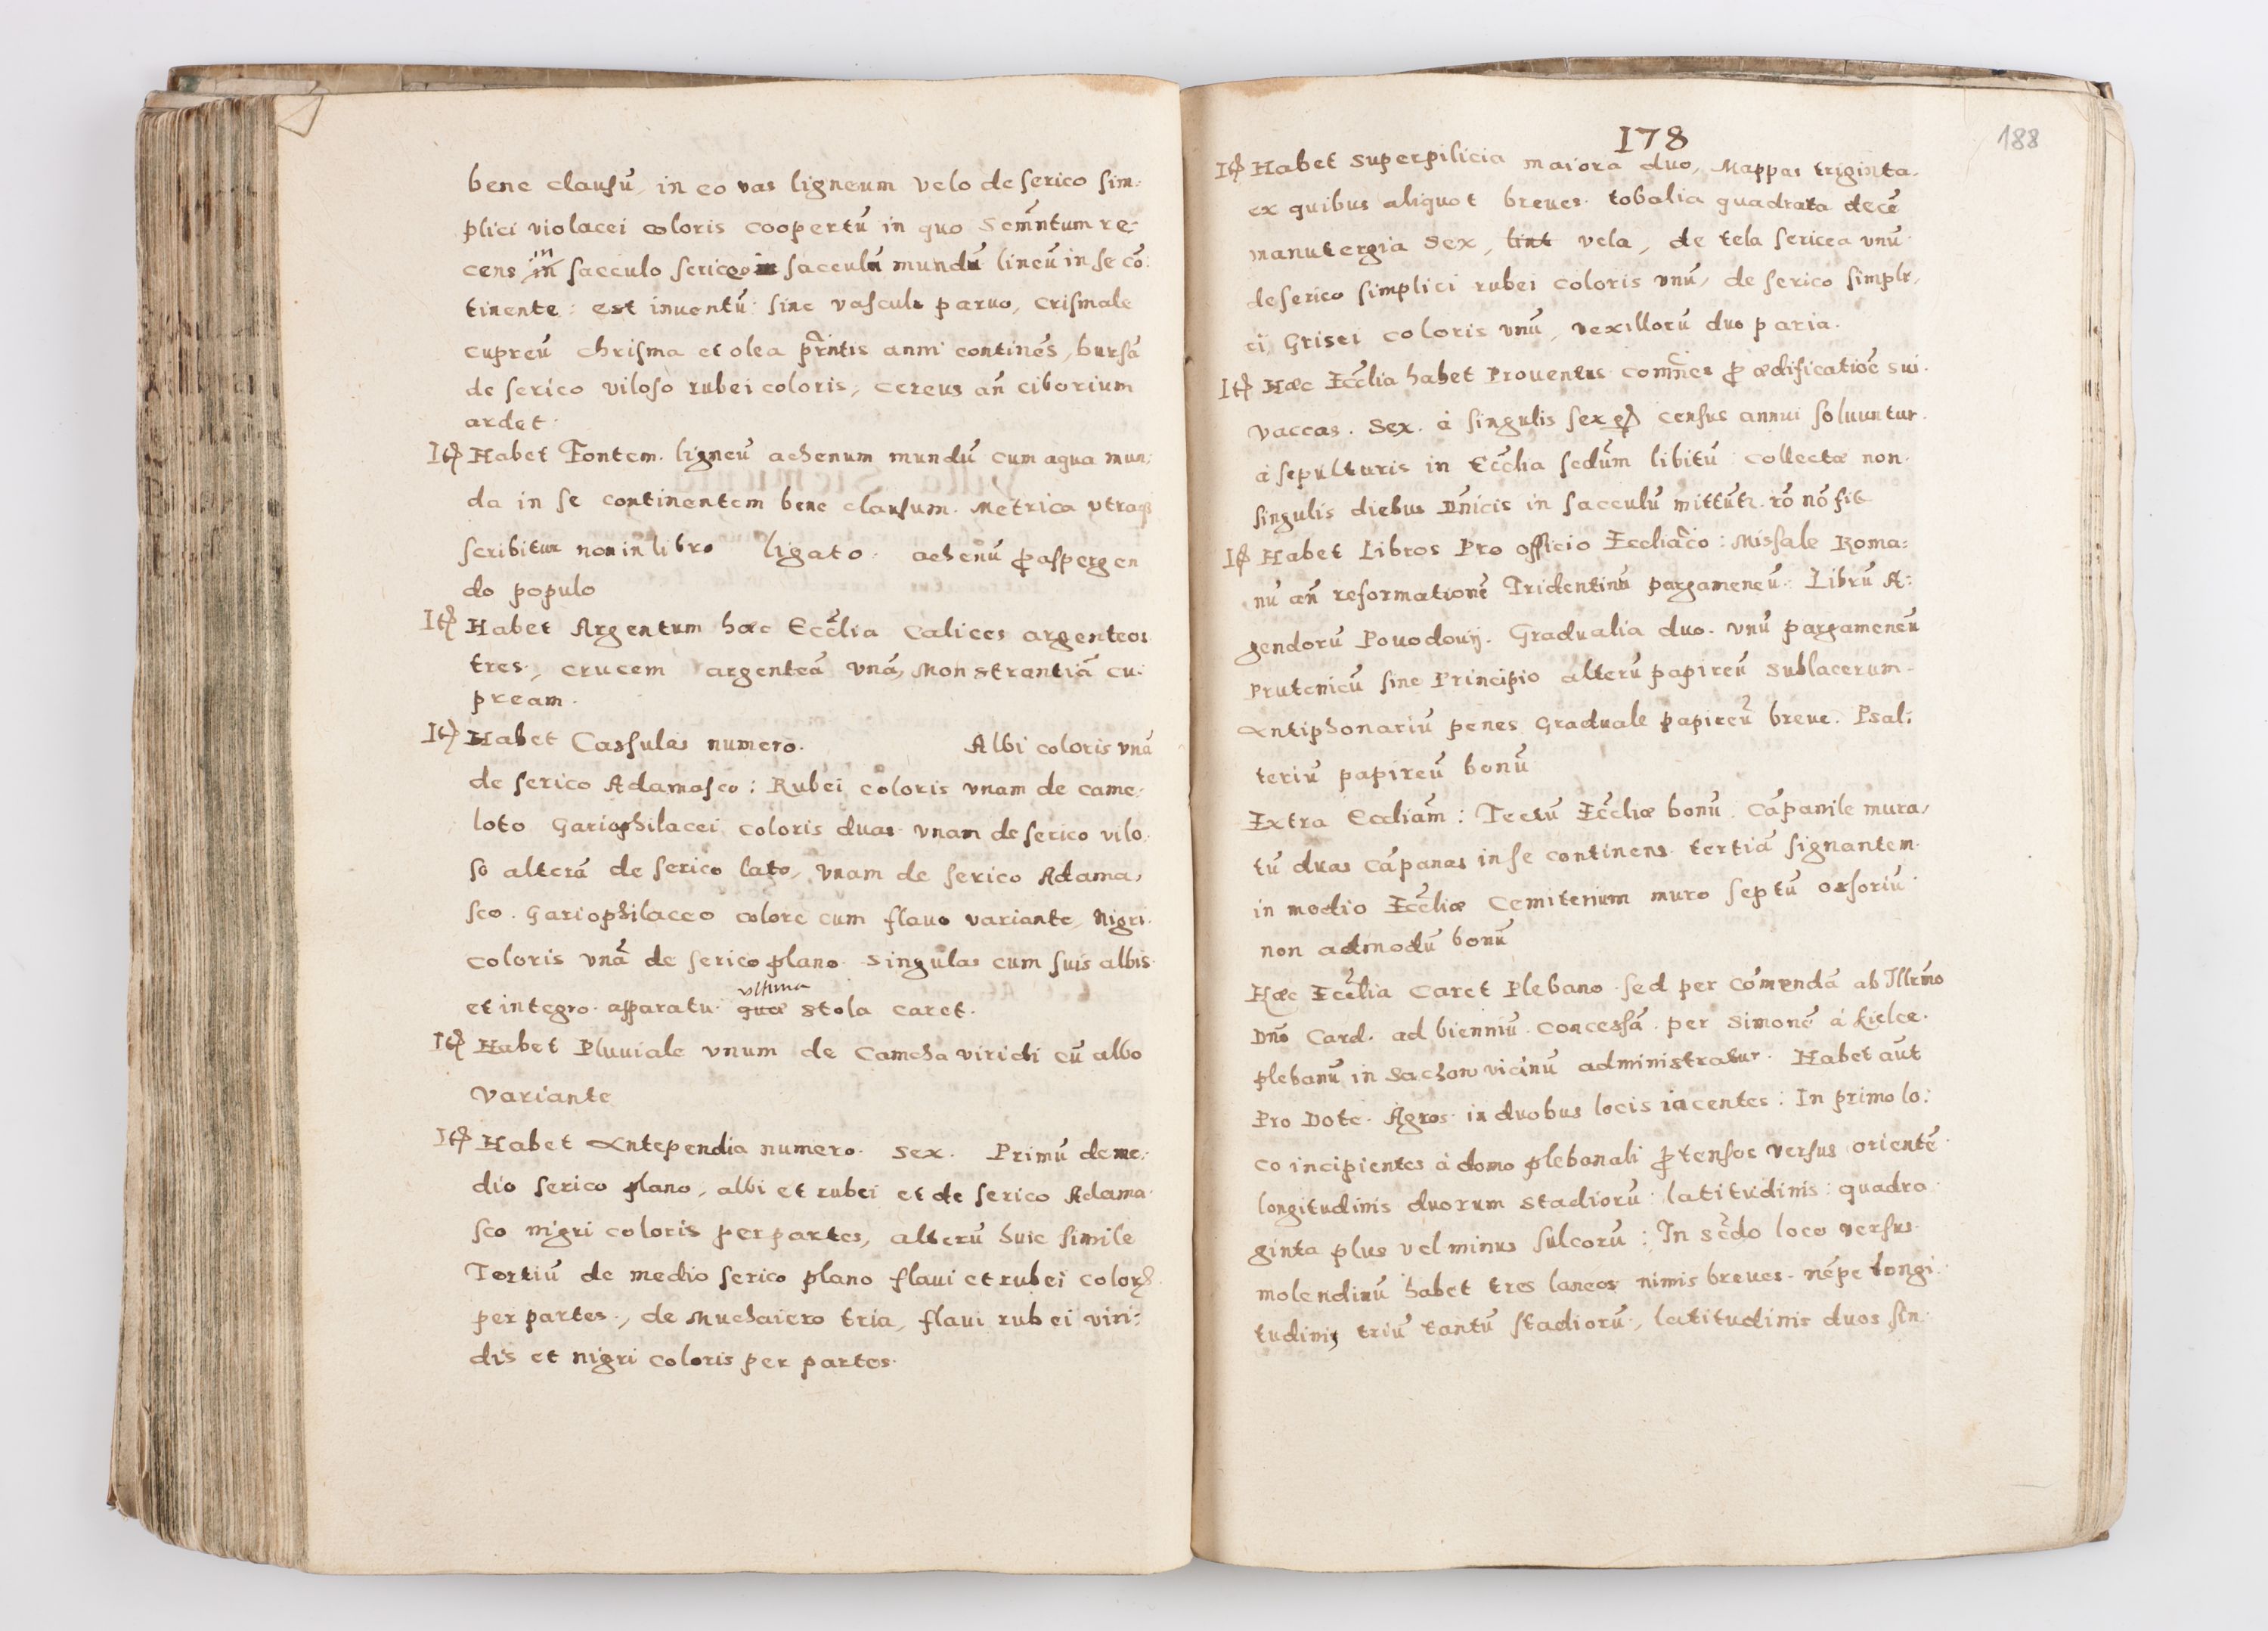 bene clausū, in eo vas ligneum velo de serico sim:
plici violacei coloris coopertū in quo Scm̄ntum re:
cens in sacculo serico sacculū mundū lineū in se cō:
tinente: est inventū sine vasculo paruo, crismale
cupreū chrisma et olea prn̄tis anni continēs, bursā
de serico viloso rubei coloris, cereus an̄ ciborium
ardet.
Itꝫ Habet Fontem ligneū ahenum mundū cum aqua mun:
da in se continentem bene clausum. Metrica utraqꝫ
scribitur non in libro ligato. ahenū ꝓ aspergen
do populo
Itꝫ Habet Argentum hæc Eccl̄ia Calices argenteos
tres, crucem argenteā vnā, Monstrantiā cu:
pream.
Itꝫ Habet Cassulas numero. Albi coloris vnā
de serico Adamasco: Rubei coloris vnam de came:
loto Gariophilacei coloris duas vnam de serico vilo:
so alterā de serico lato, vnam de serico Adama,
sco. Gariophilaceo colore cum flauo variante, Nigri
coloris vnā de serico plano singulas cum suis albis
et integro apparatu. ultima
quæ stola caret.
Itꝫ Habet Pluuiale vnum de Camcha viridi cū albo
variante
Itꝫ Habet Antependia numero. sex. Primū de me:
dio serico plano, albi et rubei et de serico Adama
sco nigri coloris per partes, alterū huic simile
Tertiū de medio serico plano flaui et rubei colorꝫ
per partes, de Muchaiero tria, flaui rubei viri:
dis et nigri coloris per partes.
178
188
Itꝫ Habet superpilicia maiora duo, Mappas triginta.
ex quibus aliquot breues. tobalia quadrata decē
manutergia sex, vela, de tela sericea vnū
de serico simplici rubei coloris vnū, de serico simpli,
ci Grisei coloris vnū, vexillorū duo paria.
Itꝫ Hæc Eccl̄ia habet Prouentus comn̄es ꝓ ædificatiōe sui.
vaccas. Sex. à singulis sex census annui soluuntur.
à sepulturis in Eccl̄ia secdūm libitū collectæ non.
singulis diebus Dn̄icis in sacculū mittūtr. rō nō fit
Itꝫ Habet Libros Pro officio Eccliāco: Missale Roma:
nū an̄ reformationē Tridentinā pargameneū. Librū A:
gendorū Povodovij. Gradualia duo. vnū pargameneū
Prutenicū sine Principio alterū papireū sublacerum.
Antiphonariū penes Graduale papireū breue. Psal:
teriū papireū bonū
Extra Eccliām: Tectū Eccl̄iæ bonū. Cāpanile mura,
tū duas cāpanas in se continens tertiā signantem
in medio Eccl̄iæ Cemiterium muro septū ossoriū
non admodū bonū
Hæc Eccl̄ia caret Plebano sed per cōmendā ab Illr̄mo
Dn̄o Card. ad bienniū concessā. per Simonē à Kielce.
plebanū in Sachow vicinū administratur. Habet aūt
Pro Dote. Agros in duobus locis iacentes: In primo lo:
co incipientes à domo plebanali ꝓtensos versus orientē
longitudinis duorum stadiorū latitudinis: quadra
ginta plus vel minus sulcorū: In secd̄o loco versus
molendinū habet tres laneos nimis breues. nēpe longi
tudinis triū tantū stadiorū, latitudinis duos sin